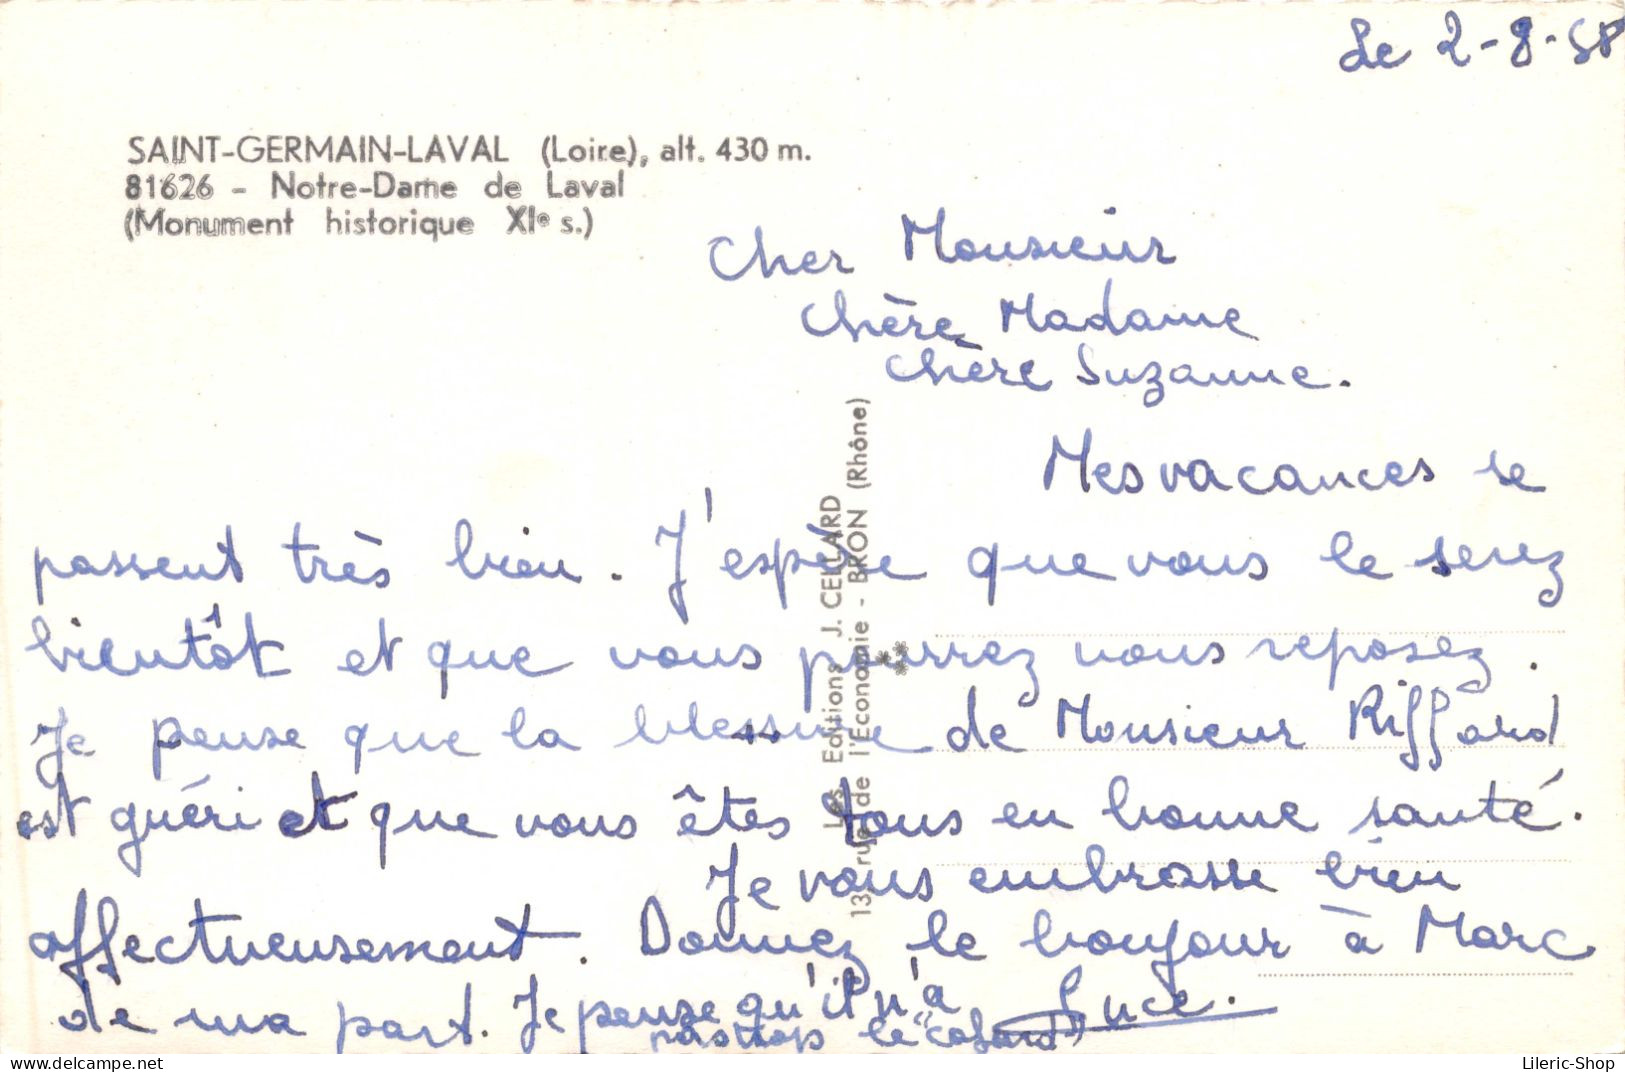 Le 2-8-58
SAINT-GERMAIN-LAVAL (Loire), alt. 430 m.
81626 - Notre-Dame de Laval
(Monument historique XIe s.)
Cher Monsieur
Chère Madame
Chère Suzanne.
Mes vacances se
passent très bien. J'espère que vous le serez
bientôt et que vous pourrez vous reposez.
Je pense que la blessure de Monsieur Riffard
est guéri et que vous êtes tous en bonne santé.
Je vous embrasse bien
affectueusement. Donnez le bonjour à Marc
de ma part. Je pense qu'il n'a
pas trop le "cafard"
Luce.
Les Editions J. CELLARD
13, rue de l'Economie - BRON (Rhône)
Lileric-Shop
www.delcampe.net